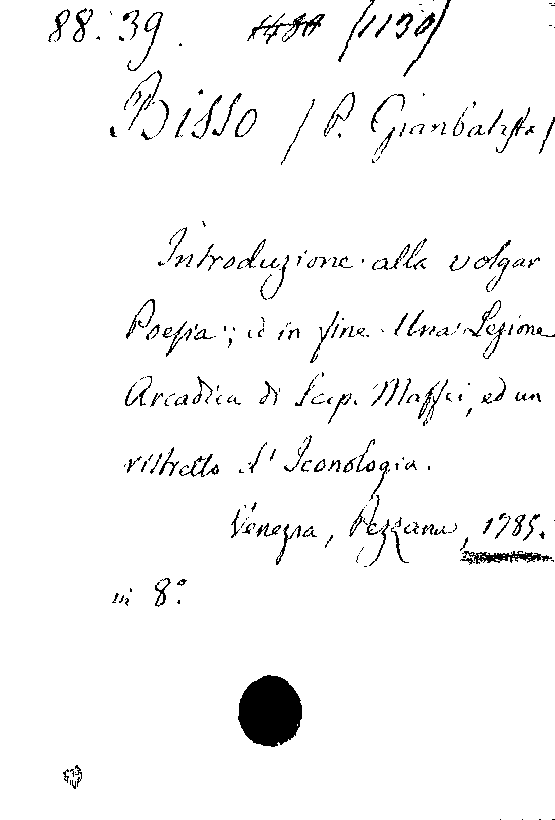 88. 39. (1130)
Bisso (P. Gianbatista)
Introduzione alla volgar
Poesia; ed in fine Una Lezione
Arcadica di Scip. Maffei, ed un
ristretto d'Iconologia.
Venezia, Pezzana, 1785.
in 8º